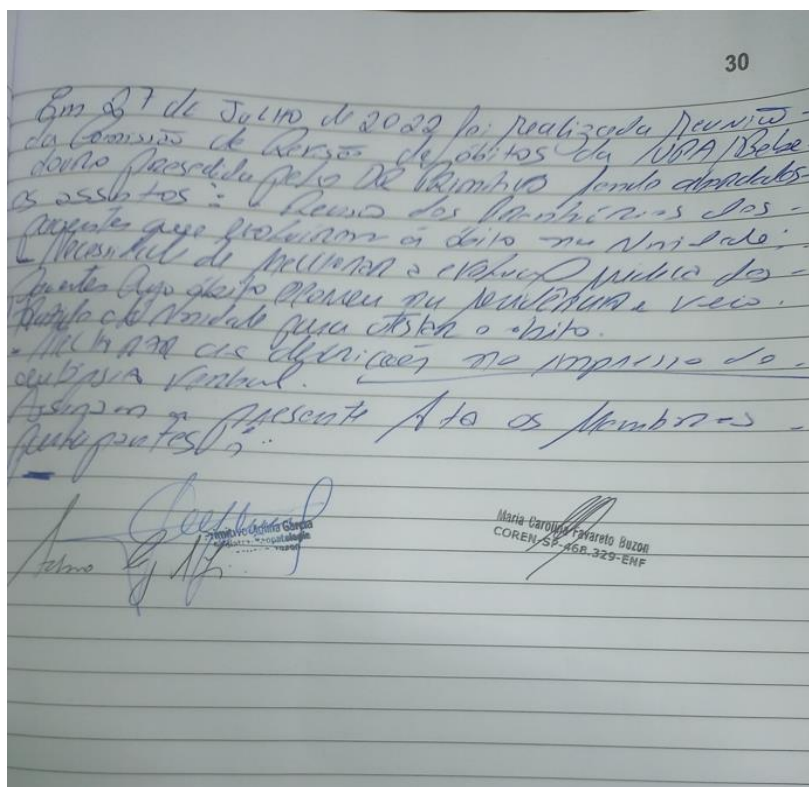 30
Em 27 de Julho de 2022 foi realizada Reunião -
da Comissão de Revisão de óbitos da UPA/Bebe
douro presedida pelo DR Primitivo sendo abordados
os assuntos: - Revisão dos Prontuários dos -
pacientes que evoluiram á óbito na Unidade;
- Necessidade de melhorar a evolução médica dos -
pacientes cujo óbito ocorreu na residência e veio
a Unidade para atestar o óbito.
- Melhorar as descrições no impresso de -
autópsia verbal.
Assinam a presente Ata os Membros -
participantes:
Primitivo Molina Garcia
Maria Carolina Favareto Buzon
COREN-SP-468.329-ENF